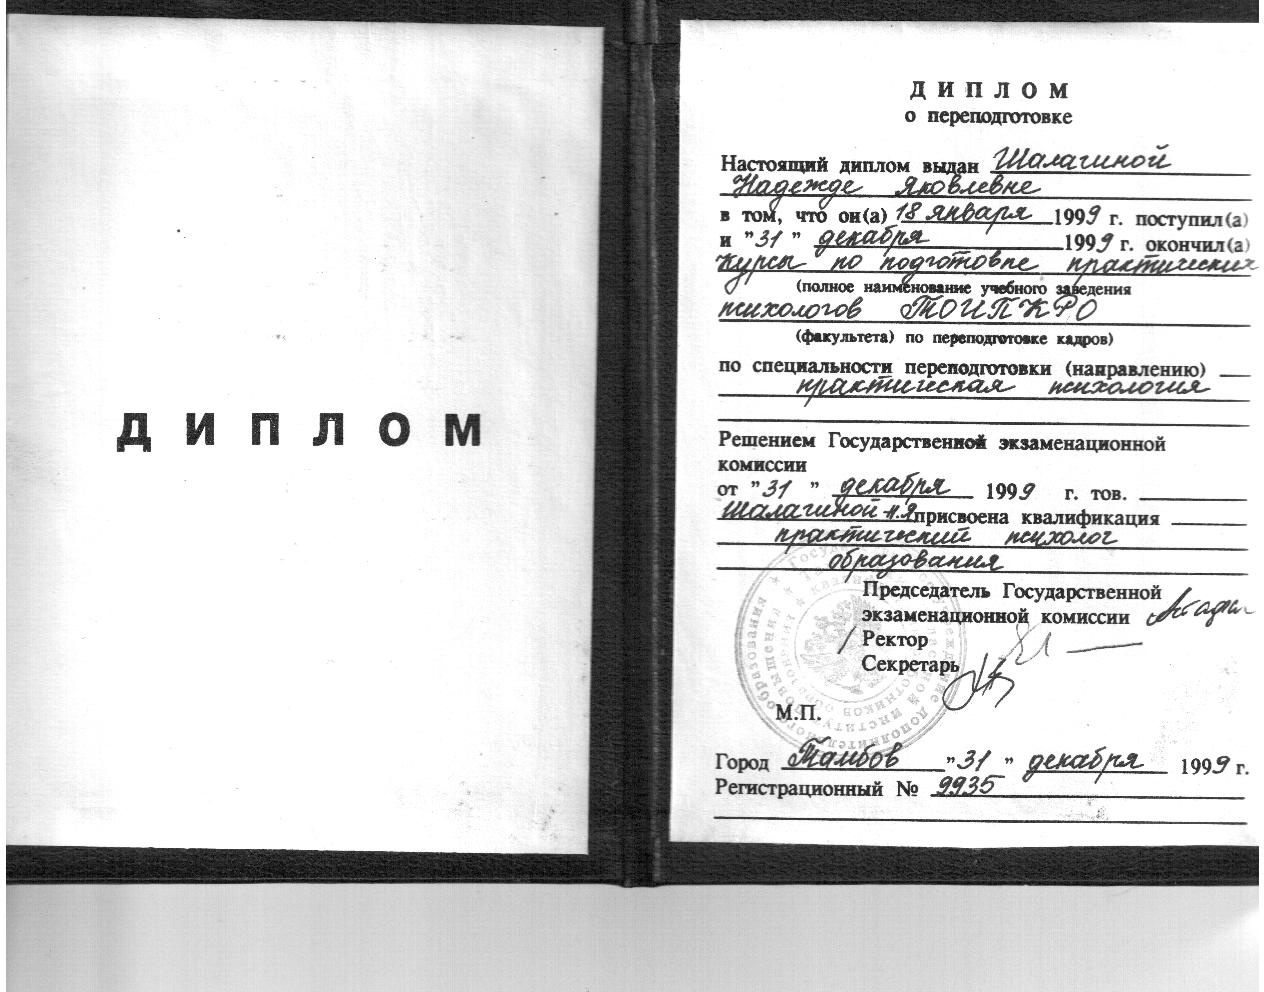 ДИПЛОМ
ДИПЛОМ
о переподготовке
Настоящий диплом выдан Шалагиной
Надежде Яковлевне
в том, что он(а) 18 января 1999 г. поступил(а)
и "31" декабря 1999 г. окончил(а)
Курсы по подготовке практических
(полное наименование учебного заведения
психологов ТОИПКРО
(факультета) по переподготовке кадров)
по специальности переподготовки (направлению)
практическая психология
Решением Государственной экзаменационной
комиссии
от "31" декабря 1999 г. тов.
Шалагиной Н.Я. присвоена квалификация
практический психолог
образования
Председатель Государственной
экзаменационной комиссии
Ректор
Секретарь
М.П.
Город Тамбов "31" декабря 1999 г.
Регистрационный № 9935